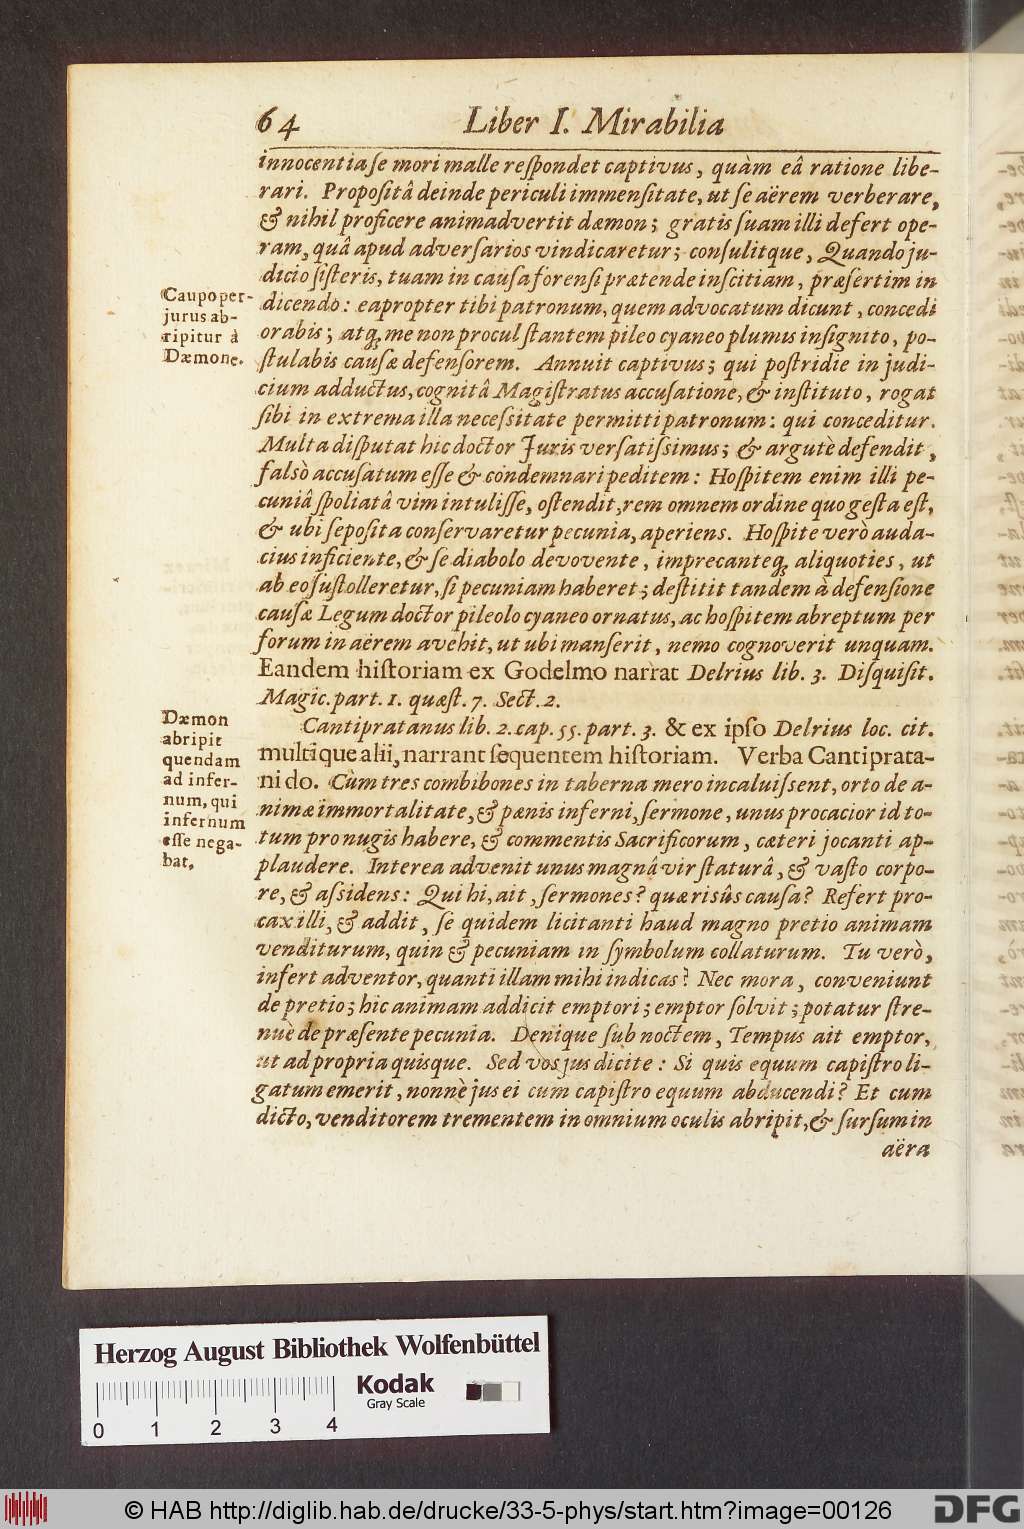 64 Liber I. Mirabilia
innocentia ſe mori malle reſpondet captivus, quàm eâ ratione libe-
rari. Propoſitâ deinde periculi immenſitate, ut ſe aërem verberare,
& nihil proficere animadvertit dæmon; gratis ſuam illi defert ope-
ram, quâ apud adverſarios vindicaretur; conſulitque, Quando ju-
dicio ſiſteris, tuam in cauſa forenſi prætende inſcitiam, præſertim in
dicendo: eapropter tibi patronum, quem advocatum dicunt, concedi
orabis; atq; me non procul ſtantem pileo cyaneo plumis inſignito, po-
ſtulabis cauſæ defenſorem. Annuit captivus; qui poſtridie in judi-
cium adductus, cognitâ Magiſtratus accuſatione, & inſtituto, rogat
ſibi in extrema illa neceſsitate permitti patronum: qui conceditur.
Multa diſputat hic doctor Juris verſatiſsimus; & argutè defendit,
falsò accuſatum eſſe & condemnari peditem: Hoſpitem enim illi pe-
cuniâ ſpoliatâ vim intuliſſe, oſtendit, rem omnem ordine quo geſta eſt,
& ubi ſepoſita conſervaretur pecunia, aperiens. Hoſpite verò auda-
cius inficiente, & ſe diabolo devovente, imprecanteq; aliquoties, ut
ab eo ſuſtolleretur, ſi pecuniam haberet; deſtitit tandem à defenſione
cauſæ Legum doctor pileolo cyaneo ornatus, ac hoſpitem abreptum per
forum in aërem avehit, ut ubi manſerit, nemo cognoverit unquam.
Eandem hiſtoriam ex Godelmo narrat Delrius lib. 3. Diſquiſit.
Magic. part. 1. quæſt. 7. Sect. 2.
Caupo per-
jurus ab-
ripitur à
Dæmone.
Cantipratanus lib. 2. cap. 55. part. 3. & ex ipſo Delrius loc. cit.
multique alii, narrant ſequentem hiſtoriam. Verba Cantiprata-
ni do. Cùm tres combibones in taberna mero incaluiſſent, orto de a-
nimæ immortalitate, & pænis inferni, ſermone, unus procacior id to-
tum pro nugis habere, & commentis Sacrificorum, cæteri jocanti ap-
plaudere. Interea advenit unus magnâ vir ſtaturâ, & vaſto corpo-
re, & aſsidens: Qui hi, ait, ſermones? quæ risûs cauſa? Refert pro-
cax illi, & addit, ſe quidem licitanti haud magno pretio animam
venditurum, quin & pecuniam in ſymbolum collaturum. Tu verò,
infert adventor, quanti illam mihi indicas? Nec mora, conveniunt
de pretio; hic animam addicit emptori; emptor ſolvit; potatur ſtre-
nuè de præſente pecunia. Denique ſub noctem, Tempus ait emptor,
ut ad propria quisque. Sed vos jus dicite: Si quis equum capiſtro li-
gatum emerit, nonnè jus ei cum capiſtro equum abducendi? Et cum
dicto, venditorem trementem in omnium oculis abripit, & ſurſum in
aëra
Dæmon
abripit
quendam
ad infer-
num, qui
infernum
eſſe nega-
bat.
Herzog August Bibliothek Wolfenbüttel
Kodak
Gray Scale
0 1 2 3 4
© HAB http://diglib.hab.de/drucke/33-5-phys/start.htm?image=00126
DFG